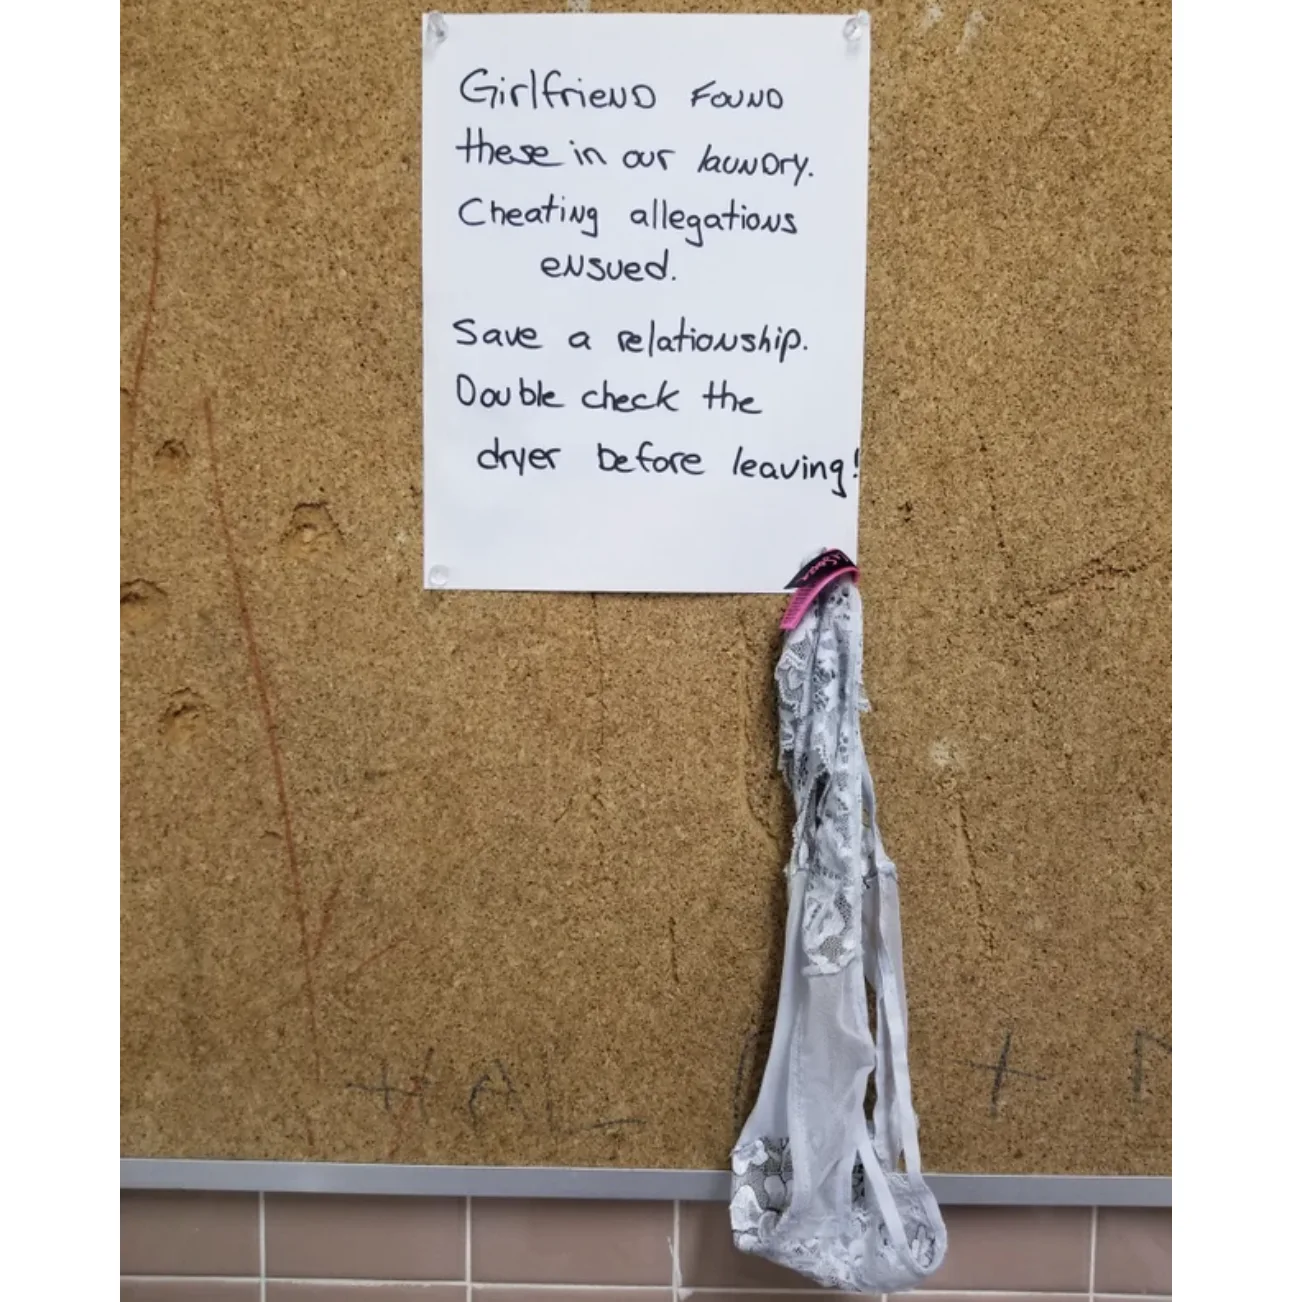 Girlfriend found
these in our laundry.
Cheating allegations
ensued.
Save a relationship.
Double check the
dryer before leaving!